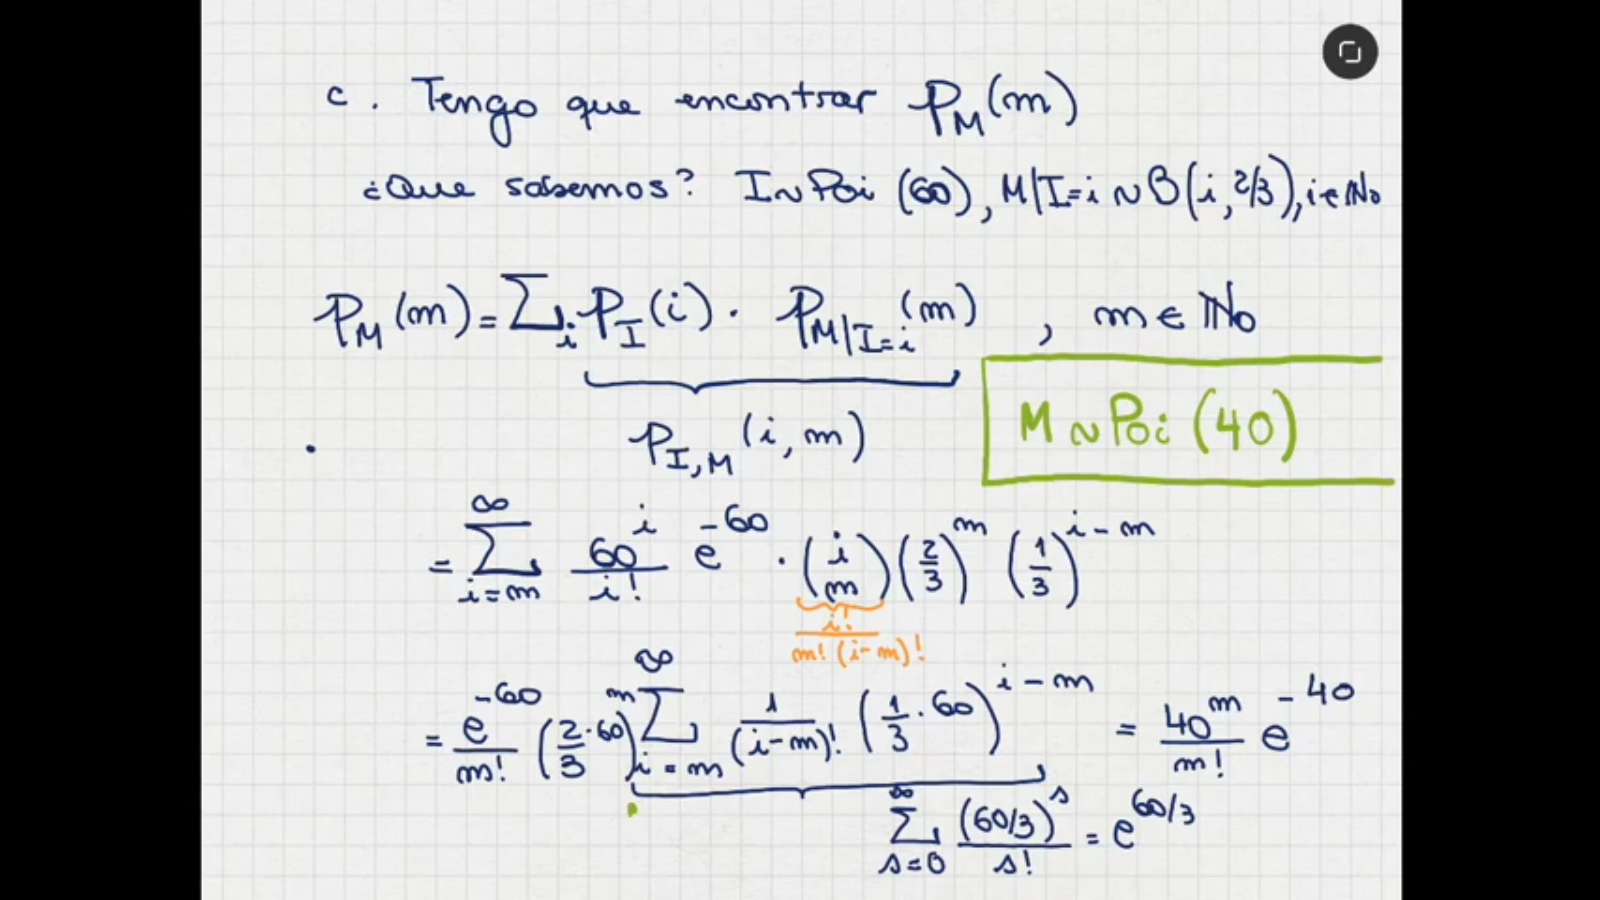 c. Tengo que encontrar P_M(m)
¿Que sabemos? I~Poi (60), M|I=i ~ B(i, 2/3), i∈ℕ₀
P_M(m) = Σ_i P_I(i) · P_{M|I=i}(m) , m ∈ ℕ₀
P_{I,M}(i, m)
M ~ Poi (40)
= Σ_{i=m}^{∞} 60^i/i! e^{-60} · (i m) (2/3)^m (1/3)^{i-m}
i!/(m! (i-m)!)
= e^{-60}/m! (2/3 · 60)^m Σ_{i=m}^{∞} 1/(i-m)! (1/3 · 60)^{i-m} = 40^m/m! e^{-40}
Σ_{s=0}^{∞} (60/3)^s/s! = e^{60/3}